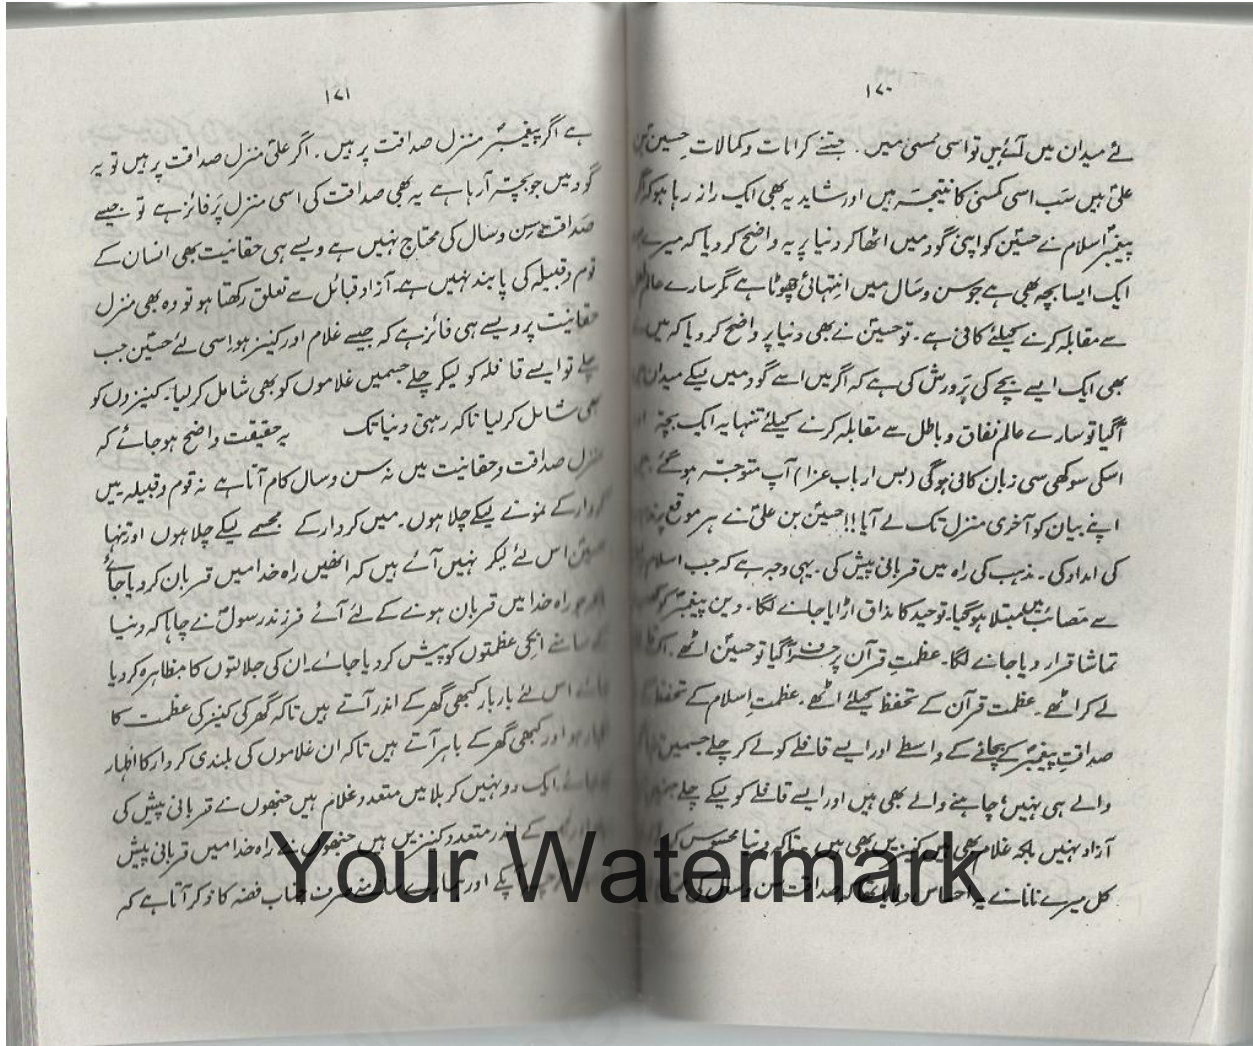 ۱۷۰
لئے میدان میں آئے ہیں تو اسی کمسنی میں۔ جتنے کرامات و کمالات حسین بن
علیؑ ہیں سَب اسی کمسنی کا نتیجہ ہیں اور شاید یہ بھی ایک راز رہا ہو کہ اگر
پیغمبرِؐ اسلام نے حسینؑ کو اپنی گود میں اٹھا کر دنیا پر یہ واضح کر دیا کہ میرے
ایک ایسا بچہ بھی ہے جو سن و سَال میں انتہائی چھوٹا ہے مگر سارے عالم
سے مقابلہ کرنے کیلئے کافی ہے۔ تو حسینؑ نے بھی دنیا پر واضح کر دیا کہ میں نے
بھی ایک ایسے بچے کی پَرورش کی ہے کہ اگر میں اسے گود میں لیکے میدان میں
آگیا تو سارے عالم نفاق و باطل سے مقابلہ کرنے کیلئے تنہا یہ ایک بچہ
اسکی سوکھی سی زبان کافی ہوگی (بس اربابِ عزا) آپ متوجہ ہو گئے
اپنے بیان کو آخری منزل تک لے آیا!! حسینؑ بن علیؑ نے ہر موقع پر
کی امداد کی۔ مذہب کی راہ میں قربانی پیش کی۔ یہی وجہ ہے کہ جب اسلام
سے مَصائب میں مبتلا ہو گیا۔ توحید کا مذاق اڑایا جانے لگا۔ دین پیغمبرؐ کو
تماشا قرار دیا جانے لگا۔ عظمتِ قرآن پر حرف آگیا تو حسینؑ اٹھے۔
لے کر اٹھے۔ عظمت قرآن کے تحفظ کیلئے اٹھے۔ عظمتِ اسلام کے تحفظ
صداقتِ پیغمبرؐ کے بچانے کے واسطے اور ایسے قافلے کو لے کر چلے جسمیں
والے ہی نہیں؛ چاہنے والے بھی ہیں اور ایسے قافلے کو لیکے چلے
آزاد نہیں بلکہ غلام بھی ہیں کنیزیں بھی ہیں تاکہ دنیا محسوس
کل میرے نانا نے یہ احساس دلایا تھا کہ صداقت سن و سال
۱۷۱
ہے اگر پیغمبرؐ منزل صداقت پر ہیں۔ اگر علیؑ منزل صداقت پر ہیں تو یہ
گود میں جو بچہ آرہا ہے یہ بھی صداقت کی اسی منزل پَر فائز ہے تو جیسے
صَداقت سِن و سال کی محتاج نہیں ہے ویسے ہی حقانیت بھی انسان کے
قوم و قبیلہ کی پابند نہیں ہے۔ آزاد قبائل سے تعلق رکھتا ہو تو وہ بھی منزل
حقانیت پر ویسے ہی فائز ہے کہ جیسے غلام اور کنیز ہو اسی لئے حسینؑ جب
چلے تو ایسے قافلہ کو لیکر چلے جسمیں غلاموں کو بھی شامل کر لیا۔ کنیزوں کو
بھی شامل کر لیا تاکہ رہتی دنیا تک یہ حقیقت واضح ہو جائے کہ
منزل صداقت و حقانیت میں نہ سن و سال کام آتا ہے نہ قوم و قبیلہ میں
کردار کے نمونے لیکے چلا ہوں۔ میں کردار کے مجسمے لیکے چلا ہوں اور تنہا
حسینؑ اس لئے لیکر نہیں آئے ہیں کہ انھیں راہ خدا میں قربان کر دیا جائے
اور جو راہ خدا میں قربان ہونے کے لئے آئے فرزند رسولؐ نے چاہا کہ دنیا
کے سامنے انکی عظمتوں کو پیش کر دیا جائے۔ ان کی جلالتوں کا مظاہرہ کر دیا
جائے اس لئے بار بار کبھی گھر کے اندر آتے ہیں تاکہ گھر کی کنیز کی عظمت کا
اظہار ہو اور کبھی گھر کے باہر آتے ہیں تاکہ ان غلاموں کی بلندی کردار کا اظہار
ہو جائے۔ ایک دو نہیں کربلا میں متعدد غلام ہیں جنھوں نے قربانی پیش کی
کے اندر متعدد کنیزیں ہیں جنھوں نے راہ خدا میں قربانی پیش
اور ہمارے سامنے صرف جناب فضہ کا ذکر آتا ہے کہ
Your Watermark